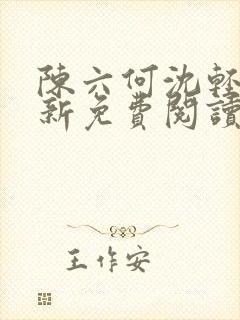 陳六何沈輕
新免費閱讀
王作安